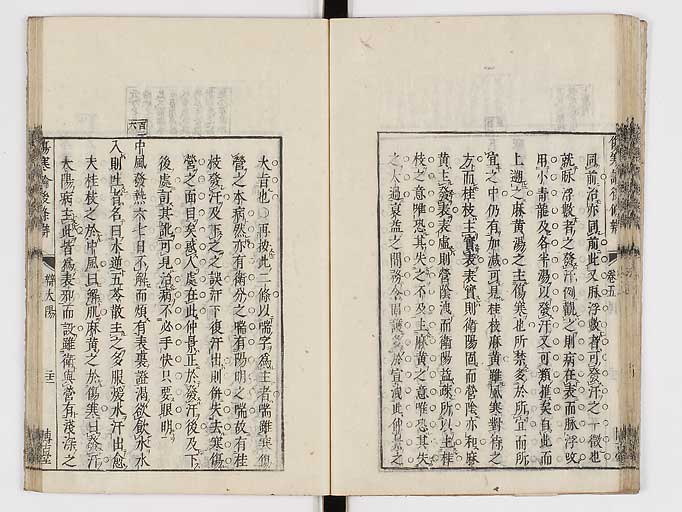 同前治亦同前此又脉浮數者可發汗之一徵也
就脉浮數者之發汗例觀之則病在表而脉浮
用小青龍及各半湯以發汗又可類推矣自此而
上遡之麻黃湯之主傷寒也所禁多於所宜而所
宜之中仍有加減可見桂枝麻黃雖風寒對待之
方而桂枝主實表表實則衛陽固而營陰亦和麻
黃主發表表虛則營陰洩而衛陽益疎所以主桂
枝之意唯恐其失之不及主麻黃之意唯恐其失
之太過裒益之間務令闔護多於宣洩此仲景之
大旨也○再按此二條以喘字為主者喘雖寒傷
營之本病然亦有衛分之喘有陽明之喘故有桂
枝發汗及下之之誤汗下必復汗出則併失去寒傷
營之面目矣惑人處在此仲景正於發汗後及下
後處訂其訛可見治病不必手快只要眼明
百二六
中風發熱六七日不解而煩有表裏證渴欲飲水水
入則吐者名曰水逆五苓散主之多服煖水汗出愈
夫桂枝之於中風曰解肌麻黃之於傷寒曰發汗
太陽病主此皆為表邪而設雖衛與營有淺深之
傷寒論後條辨
辨太陽
卷五